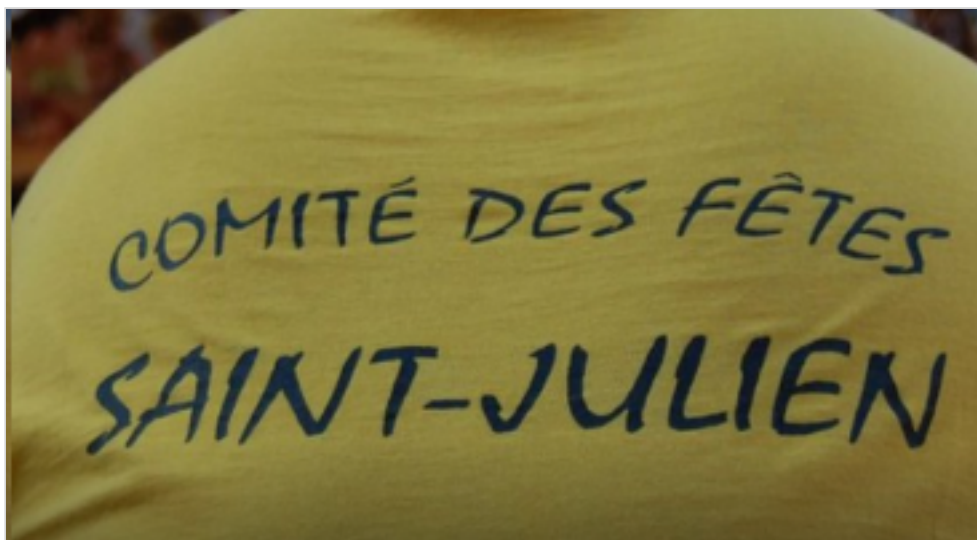 COMITÉ DES FÊTES
SAINT-JULIEN